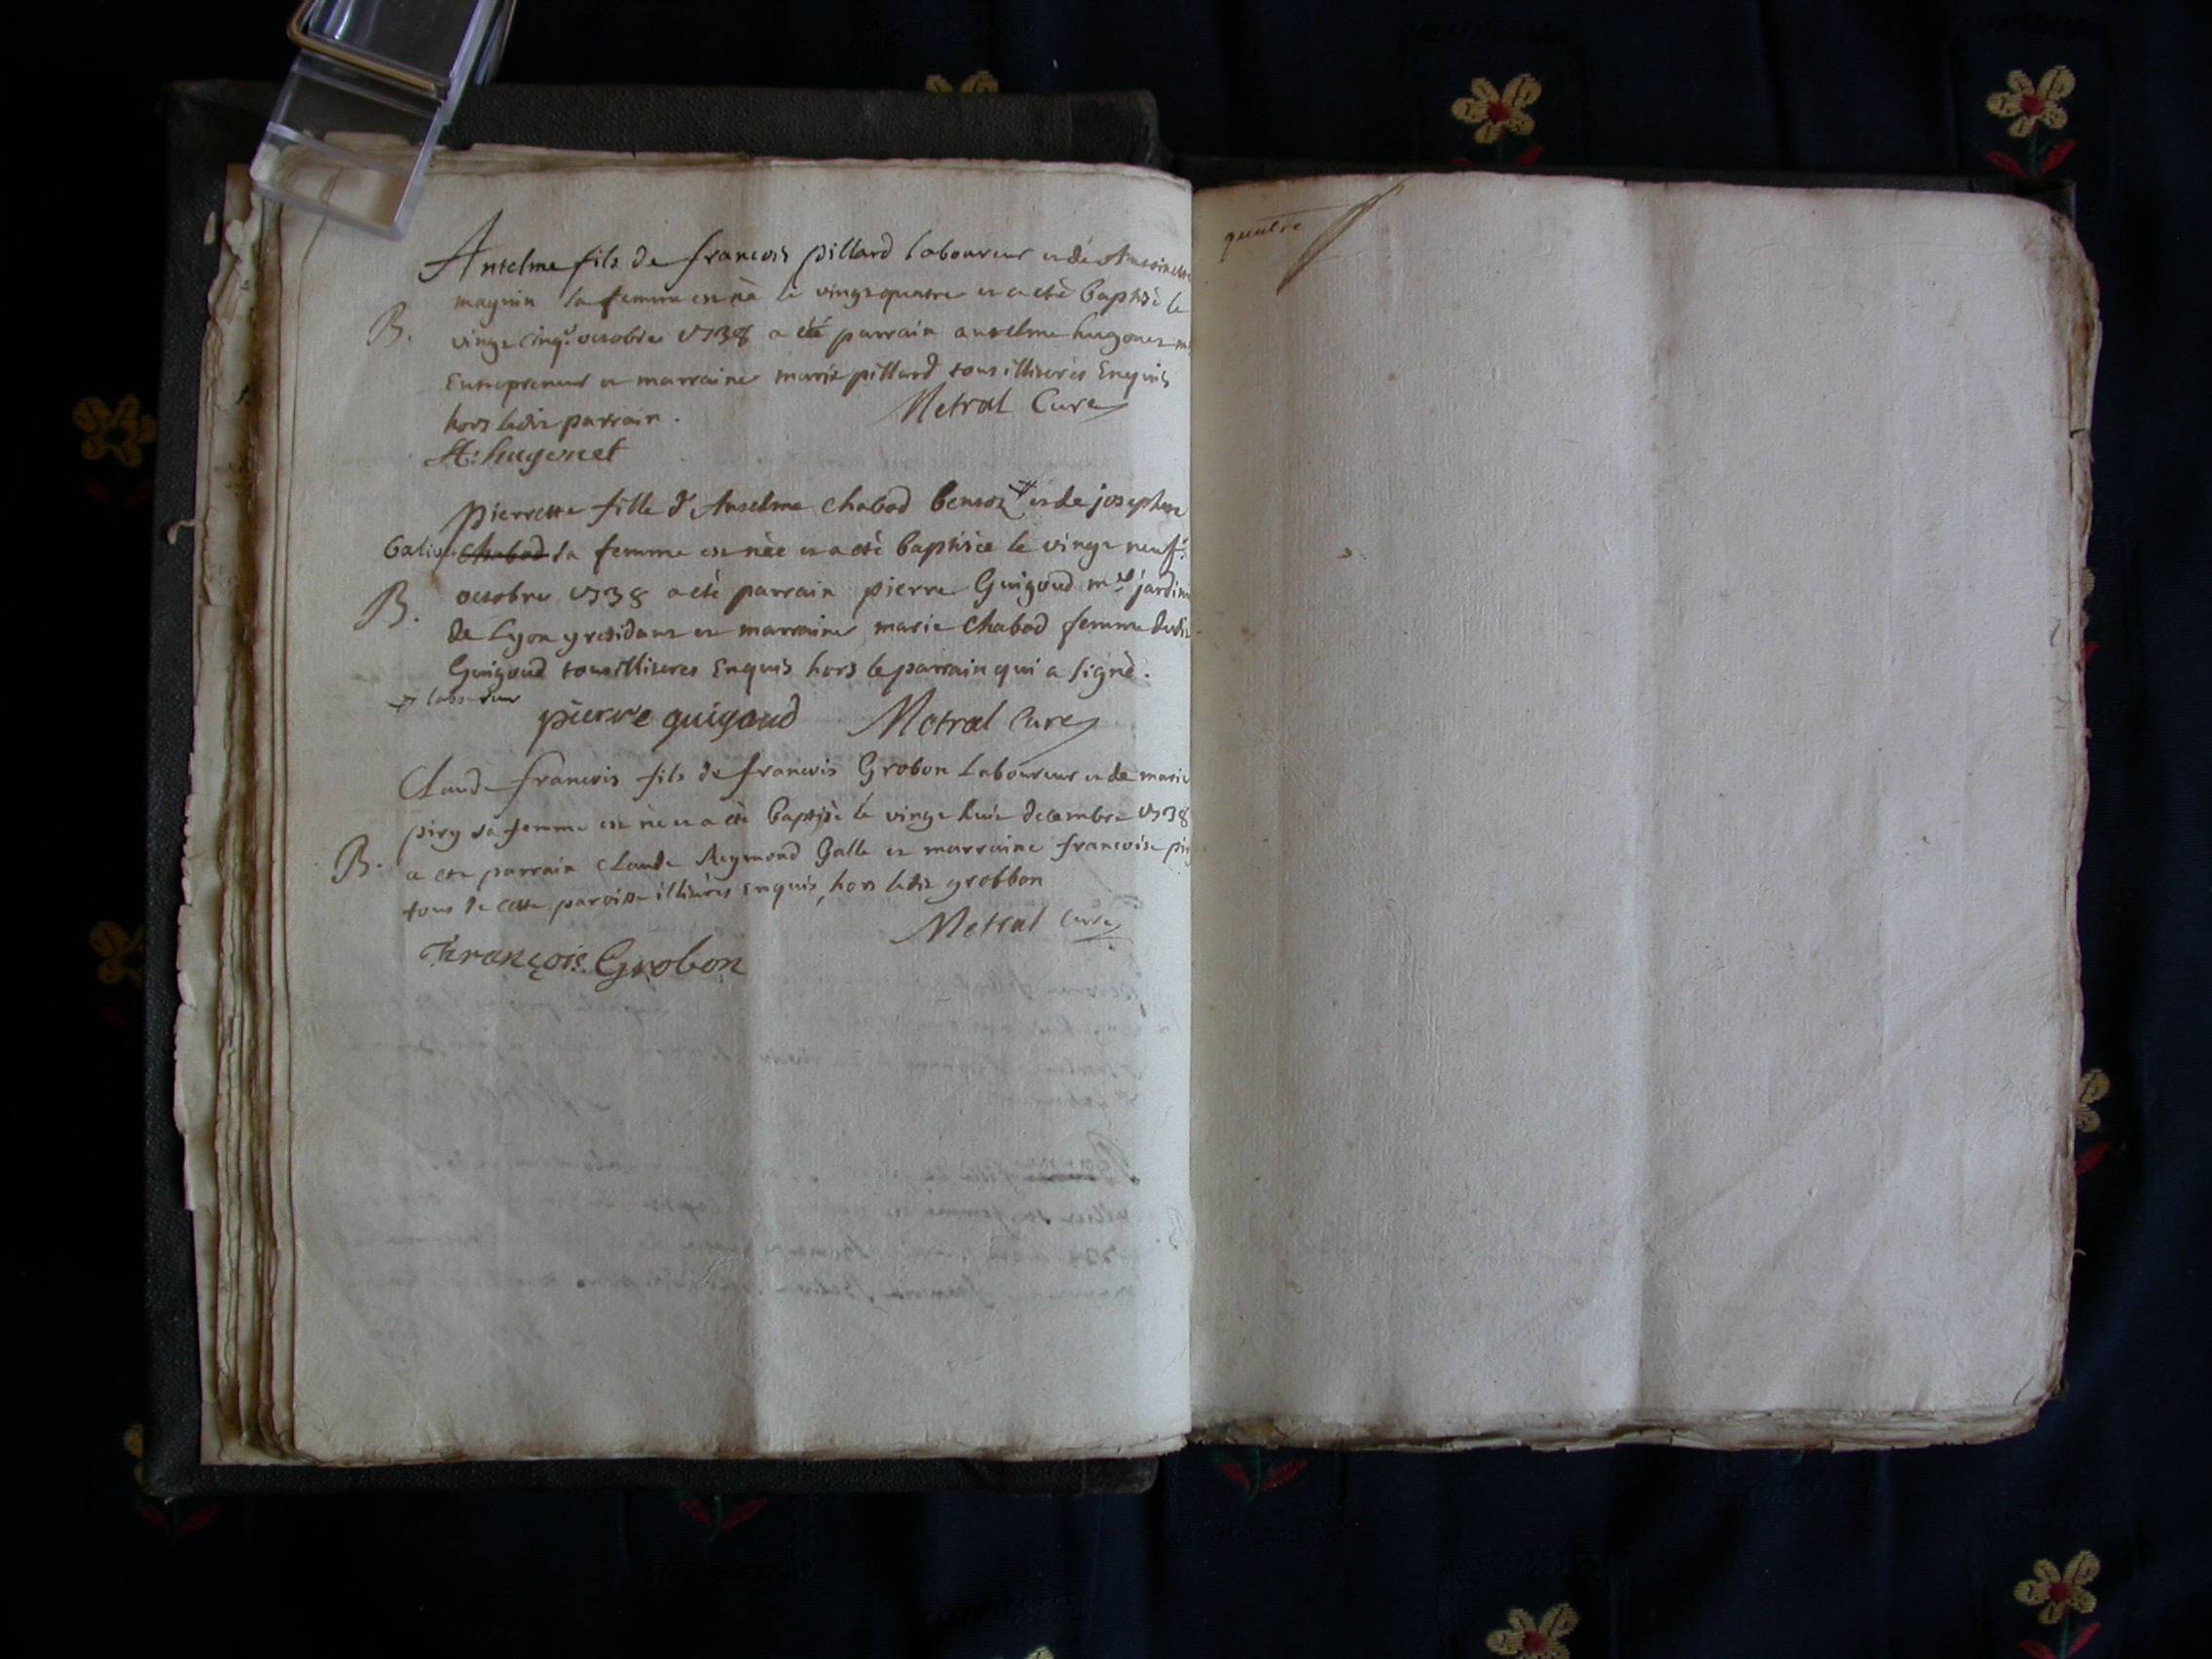 Anselme fils de francois pillard laboureur et de Antoinette
magnin sa femme est né le vingt quatre et a eté baptisé le
B. vingt cinq.e octobre 1738 a eté parrain anselme hugonet
Entrepreneur et marraine marie pillard tous illiterés Enquis
hors ledit parrain. Metral Curé
A: hugonet
pierrette fille d'Anselme Chabod et de josephte
Galix Chabod sa femme est née et a eté baptisée le vingt neuf.e
B. octobre 1738 a eté parrain pierre Guigoud m.e jardini
de Lyon y residant et marraine marie Chabod femme dudit
Guigoud tous illiteres Enquis hors le parrain qui a signé.
laboureur
pierre guigoud Metral Curé
Claude francois fils de francois Grobon Laboureur et de marie
piry sa femme est né et a eté baptisé le vingt huit decembre 1738
B. a eté parrain Claude Reymond Galle et marraine francoise
tous de cette paroisse illiterés enquis, hors ledit grobbon
Metral Curé
François Grobon
quatre